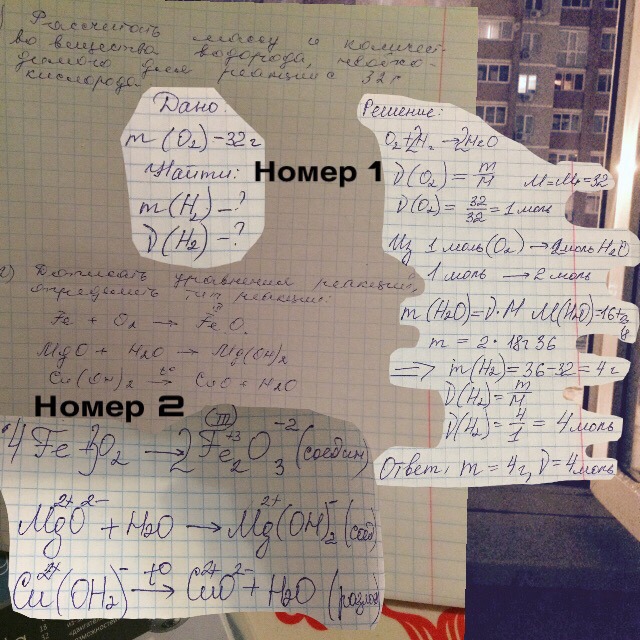 1) Рассчитать массу и количест-
во вещества водорода, необхо-
димого для реакции с 32 г
кислорода.
Дано:
m(O₂)-32г
Найти:
m(H₂)-?
ν(H₂)-?
Номер 1
Решение:
O₂+2H₂→2H₂O
ν(O₂) = m/M M=Mr=32
ν(O₂) = 32/32 = 1 моль
Из 1 моль(O₂) → 2моль H₂O
1 моль → 2 моль
m(H₂O)=ν·M M(H₂O)=16+2=18
m = 2·18=36
⟹ m(H₂) = 36-32 = 4 г
ν(H₂) = m/M
ν(H₂) = 4/1 = 4 моль
Ответ: m = 4г, ν = 4моль
2) Дописать уравнения реакций,
определить тип реакции:
III
Fe + O₂ → FeO
MgO + H₂O → Mg(OH)₂
Cu(OH)₂ →t° CuO + H₂O
Номер 2
(III)
4Fe+3O₂ → 2Fe₂⁺³O₃⁻² (соедин)
Mg²⁺O²⁻ + H₂O → Mg²⁺(OH)₂⁻ (соед)
Cu²⁺(OH₂)⁻ →t° Cu²⁺O²⁻ + H₂O (разлож)